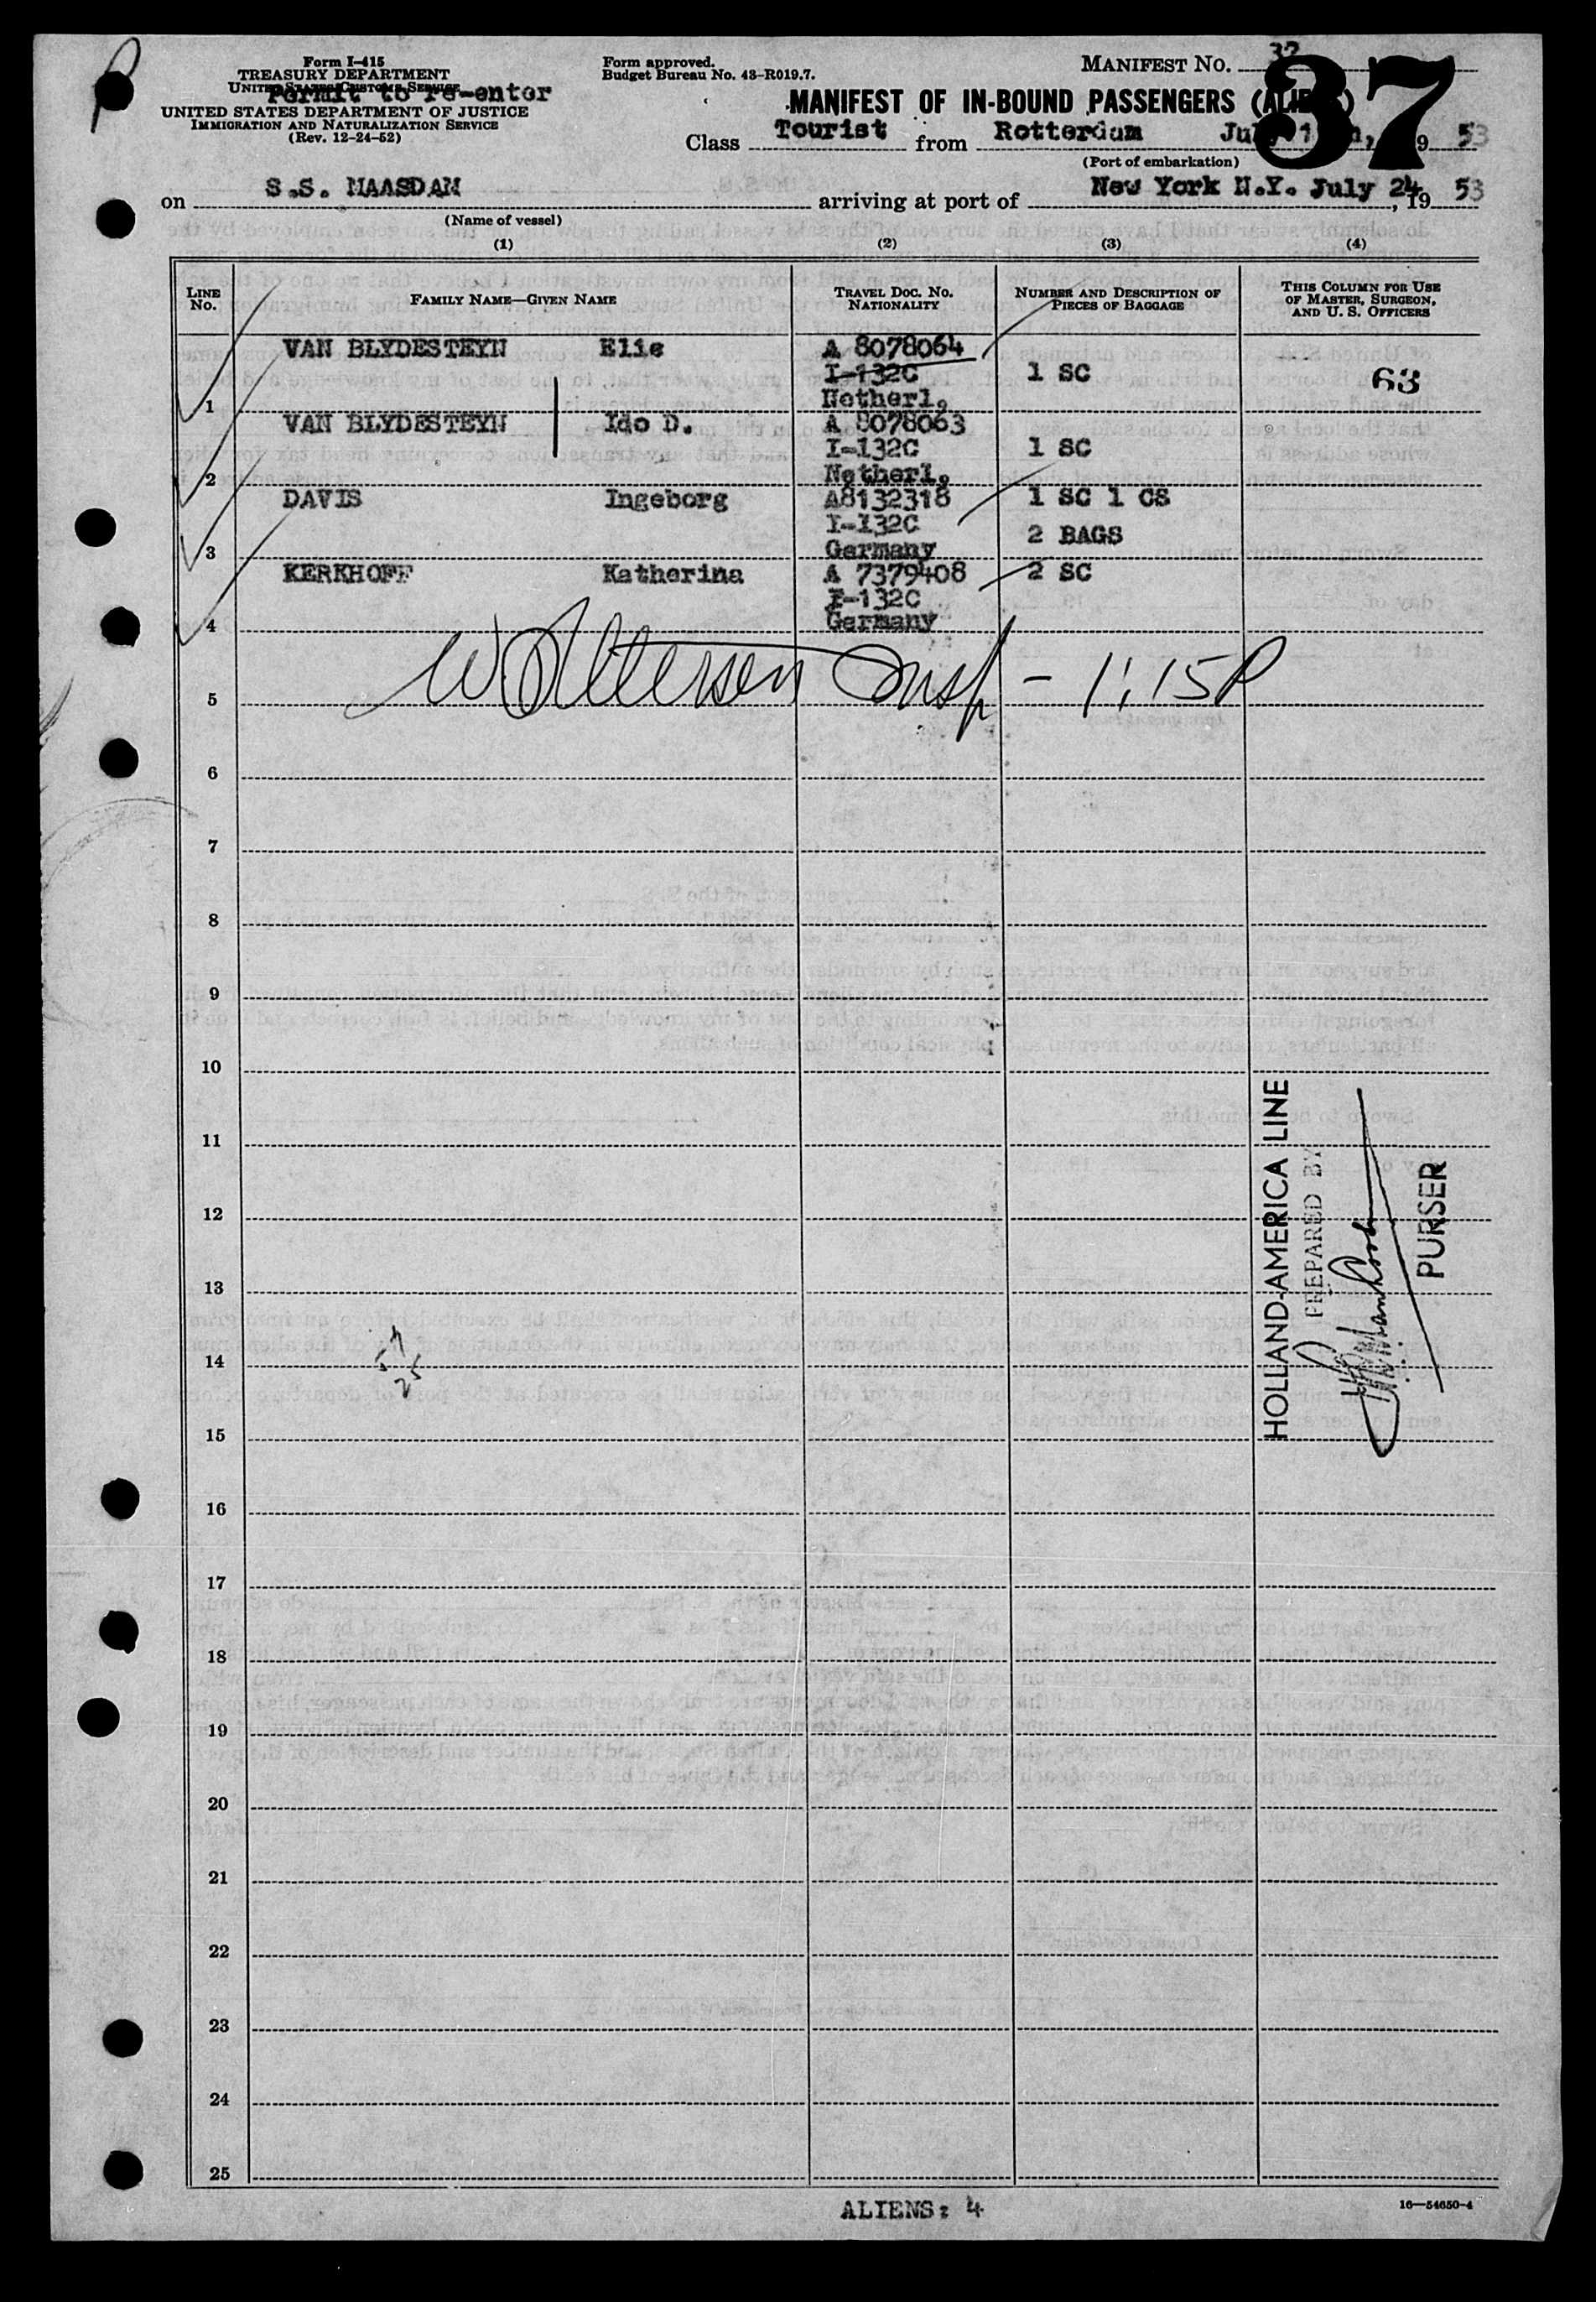 Form I-415
TREASURY DEPARTMENT
UNITED STATES CUSTOMS SERVICE
Permit to re-enter
UNITED STATES DEPARTMENT OF JUSTICE
IMMIGRATION AND NATURALIZATION SERVICE
(Rev. 12-24-52)
Form approved.
Budget Bureau No. 43-R019.7.
MANIFEST NO. 37
37
MANIFEST OF IN-BOUND PASSENGERS (ALIENS)
Class Tourist from Rotterdam 53
(Port of embarkation)
on S.S. MAASDAM arriving at port of New York N.Y. July 24, 1953
(Name of vessel)
(1) (2) (3) (4)
LINE NO. FAMILY NAME—GIVEN NAME TRAVEL DOC. NO. NATIONALITY NUMBER AND DESCRIPTION OF PIECES OF BAGGAGE THIS COLUMN FOR USE OF MASTER, SURGEON, AND U. S. OFFICERS
VAN BLYDESTEYN Elie A 8078064
I-132C 1 SC 63
1 Netherl.
VAN BLYDESTEYN Ido D. A 8078063
I-132C 1 SC
2 Netherl.
DAVIS Ingeborg A8132318 1 SC 1 CS
I-132C 2 BAGS
3 Germany
KERKHOFF Katherina A 7379408 2 SC
I-132C
4 Germany
Insp - 1:15P
5
6
7
8
9
10
11
12
13
14
15
16
17
18
19
20
21
22
23
24
25
HOLLAND-AMERICA LINE
PREPARED BY
PURSER
ALIENS: 4
16—54650-4